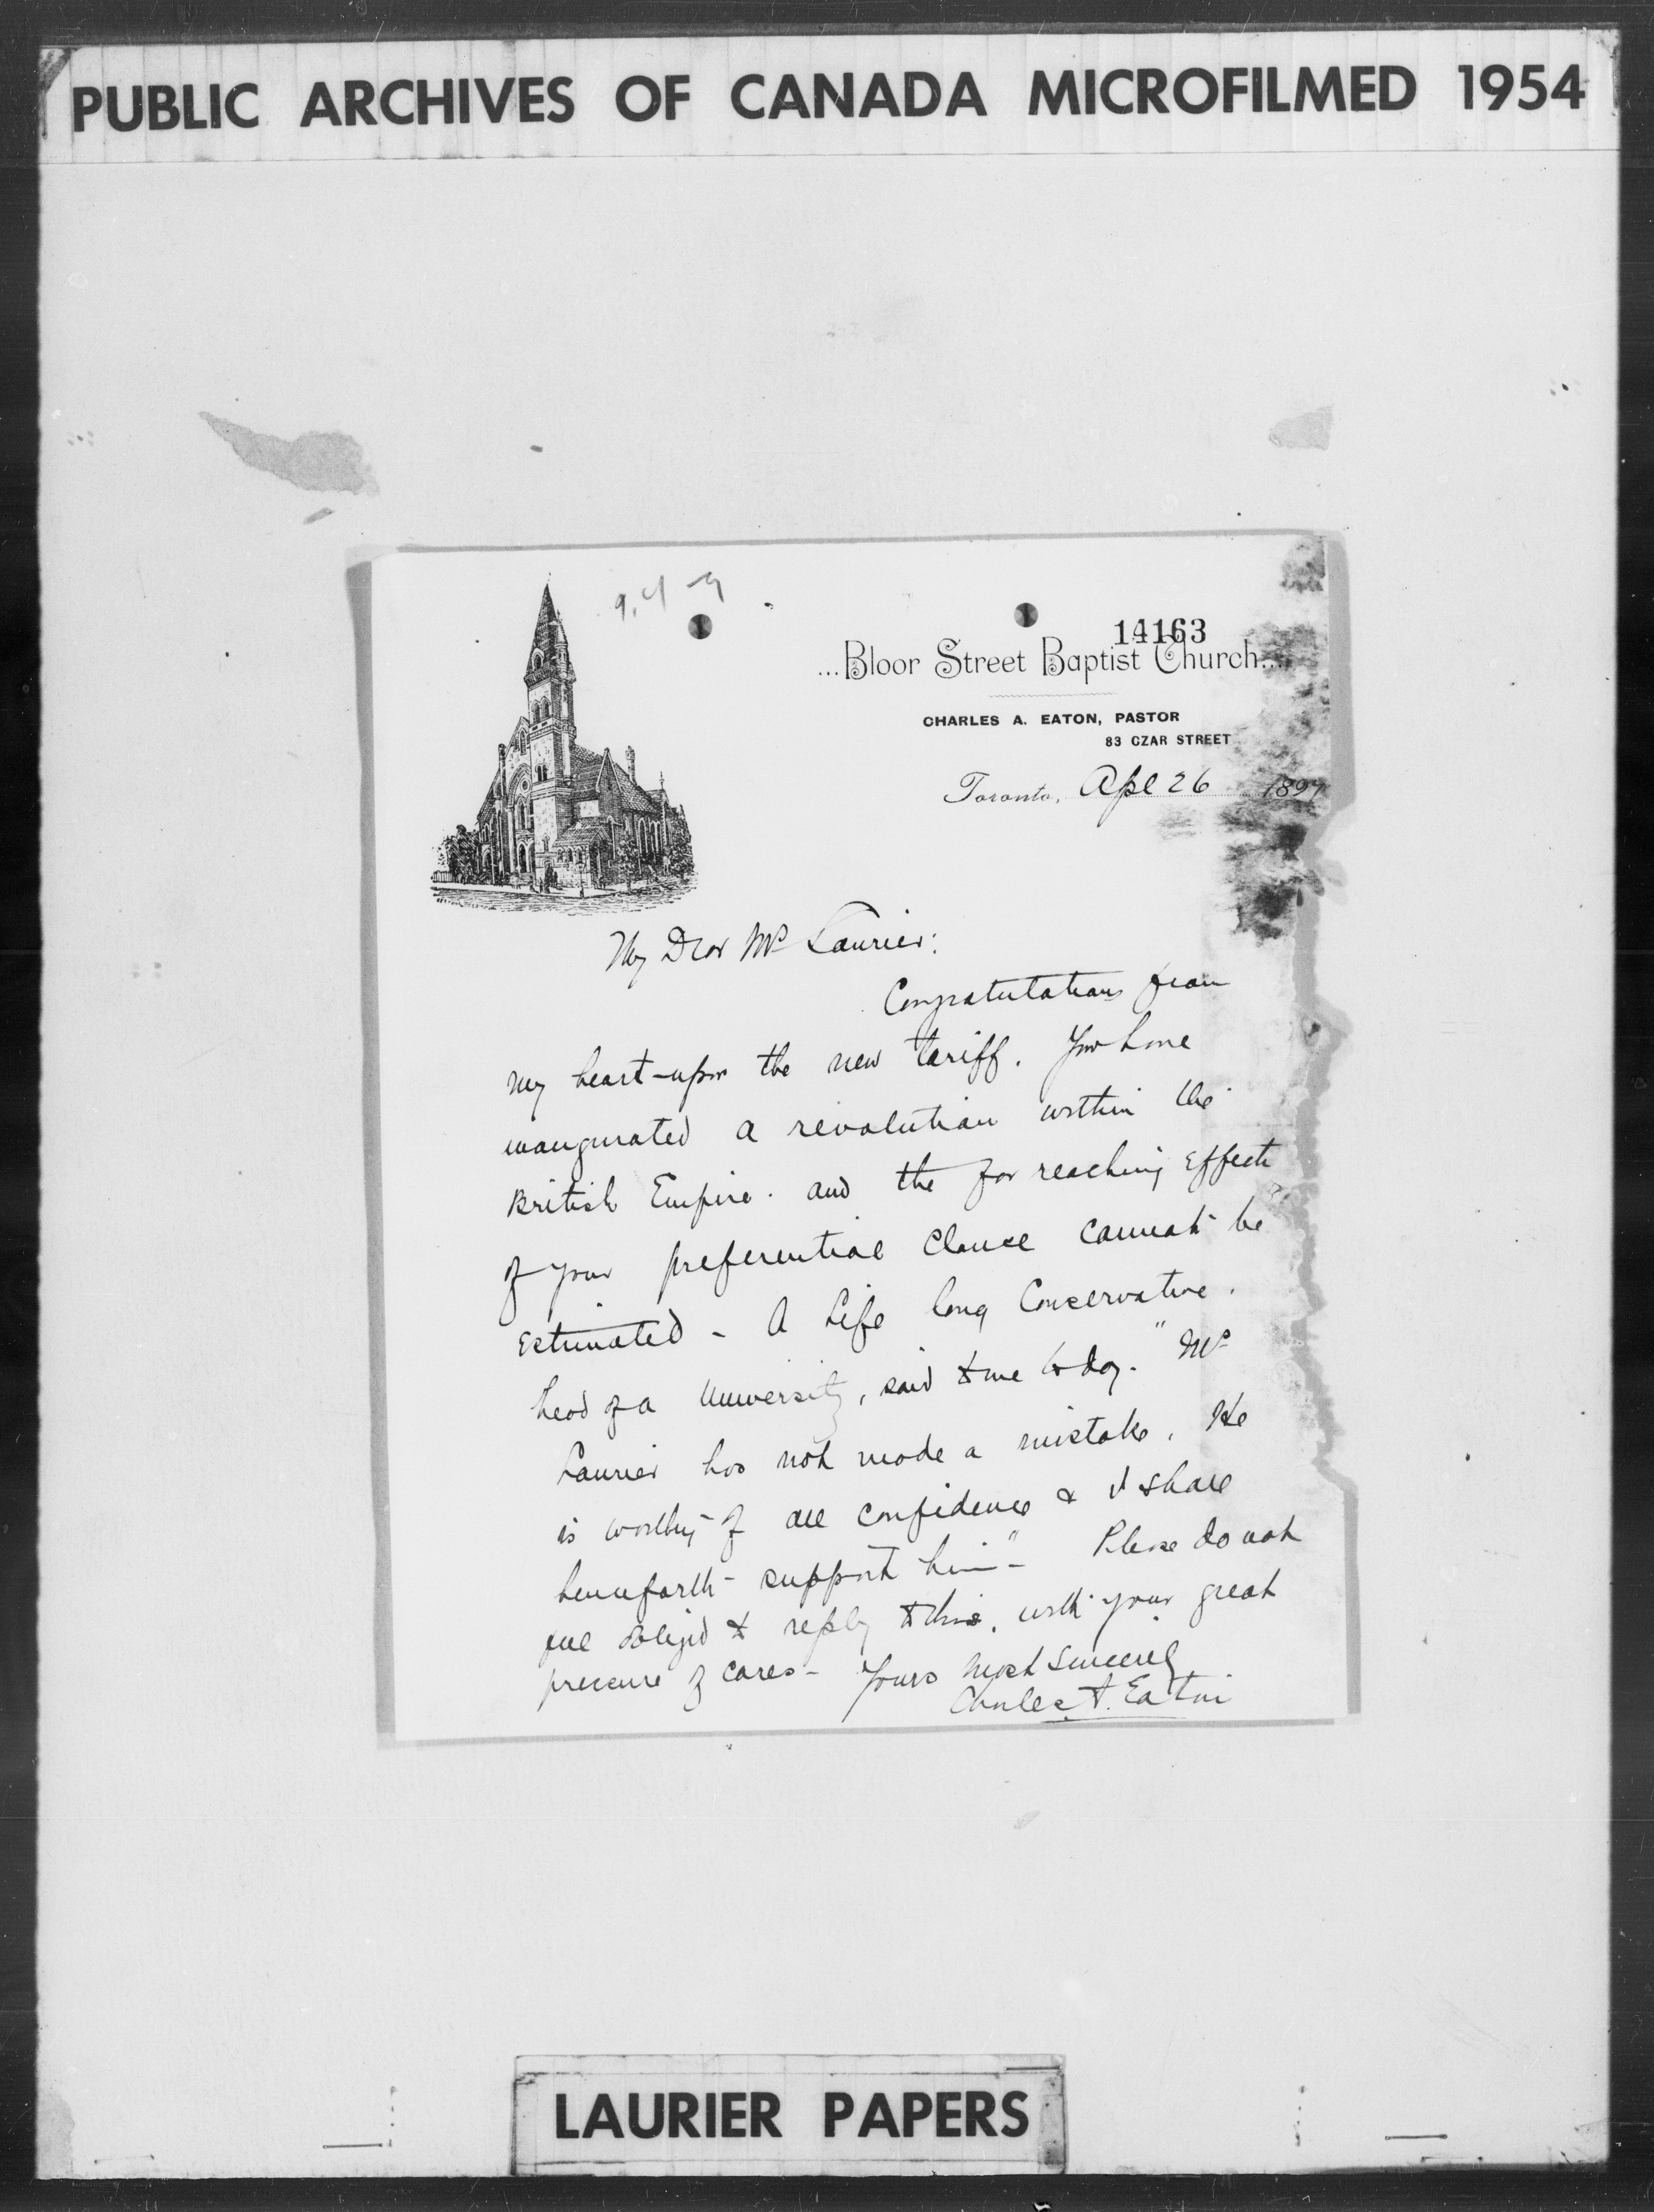 PUBLIC ARCHIVES OF CANADA MICROFILMED 1954
14163
...Bloor Street Baptist Church...
CHARLES A. EATON, PASTOR
83 CZAR STREET
Toronto, Apl 26 1897
My Dear Mr Laurier:
Congratulations from
my heart upon the new tariff. You have
inaugurated a revolution within the
British Empire. and the far reaching Effects
of your preferential Clause Cannot be
Estimated - A Life long Conservative.
head of a University, said to me to day. "Mr
Laurier has not made a mistake. He
is worthy of all Confidence & I shall
henceforth support him" - Please do not
feel obliged to reply to this, with your great
pressure of cares - Yours Most Sincerely
Charles A. Eaton
LAURIER PAPERS